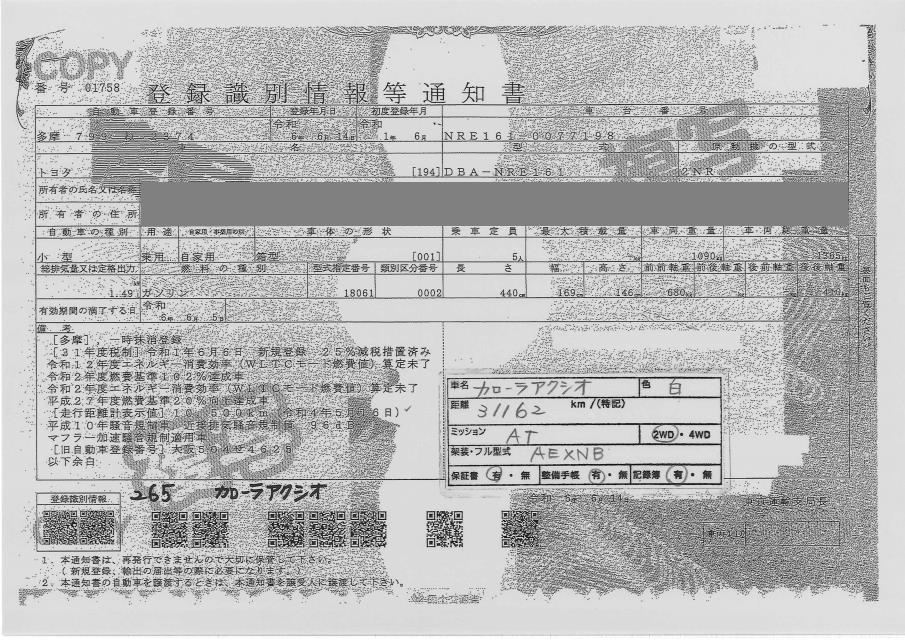 COPY
番号 01758
登録識別情報等通知書
自動車登録番号 登録年月日 初度登録年月 車台番号
多摩 令和 6年 6月 14日 令和 1年 6月 NRE161-0077198
車名 型式 原動機の型式
トヨタ [194] DBA-NRE161 2NR
所有者の氏名又は名称
所有者の住所
自動車の種別 用途 自家用・事業用の別 車体の形状 乗車定員 最大積載量 車両重量 車両総重量
小型 乗用 自家用 箱型 [001] 5人 1090kg 1365kg
総排気量又は定格出力 燃料の種別 型式指定番号 類別区分番号 長さ 幅 高さ 前前軸重 前後軸重 後前軸重 後後軸重
1.49 ガソリン 18061 0002 440cm 169cm 146cm 680kg
有効期間の満了する日 令和 6年 6月 5日
備考
[多摩],一時抹消登録
[31年度税制]令和1年6月6日 新規登録 25%減税措置済み
令和12年度エネルギー消費効率(WLTCモード燃費値)算定未了
令和2年度燃費基準102%達成車
令和2年度エネルギー消費効率(WLTCモード燃費値)算定未了
平成27年度燃費基準20%向上達成車
[走行距離計表示値] (令和4年5月 6日)✓
平成10年騒音規制車、近接排気騒音規制値
マフラー加速騒音規制適用車
[旧自動車登録番号]大阪504せ4625
以下余白
車名 カローラアクシオ 色 白
距離 31162 km/(特記)
ミッション AT 2WD・4WD
架装・フル型式 AEXNB
保証書 有・無 整備手帳 有・無 記録簿 有・無
登録識別情報 265 カローラアクシオ
1.本通知書は、再発行できませんので大切に保管して下さい。
(新規登録、輸出の届出等の際に必要になります。)
2.本通知書の自動車を譲渡するときは、本通知書を譲受人に譲渡して下さい。